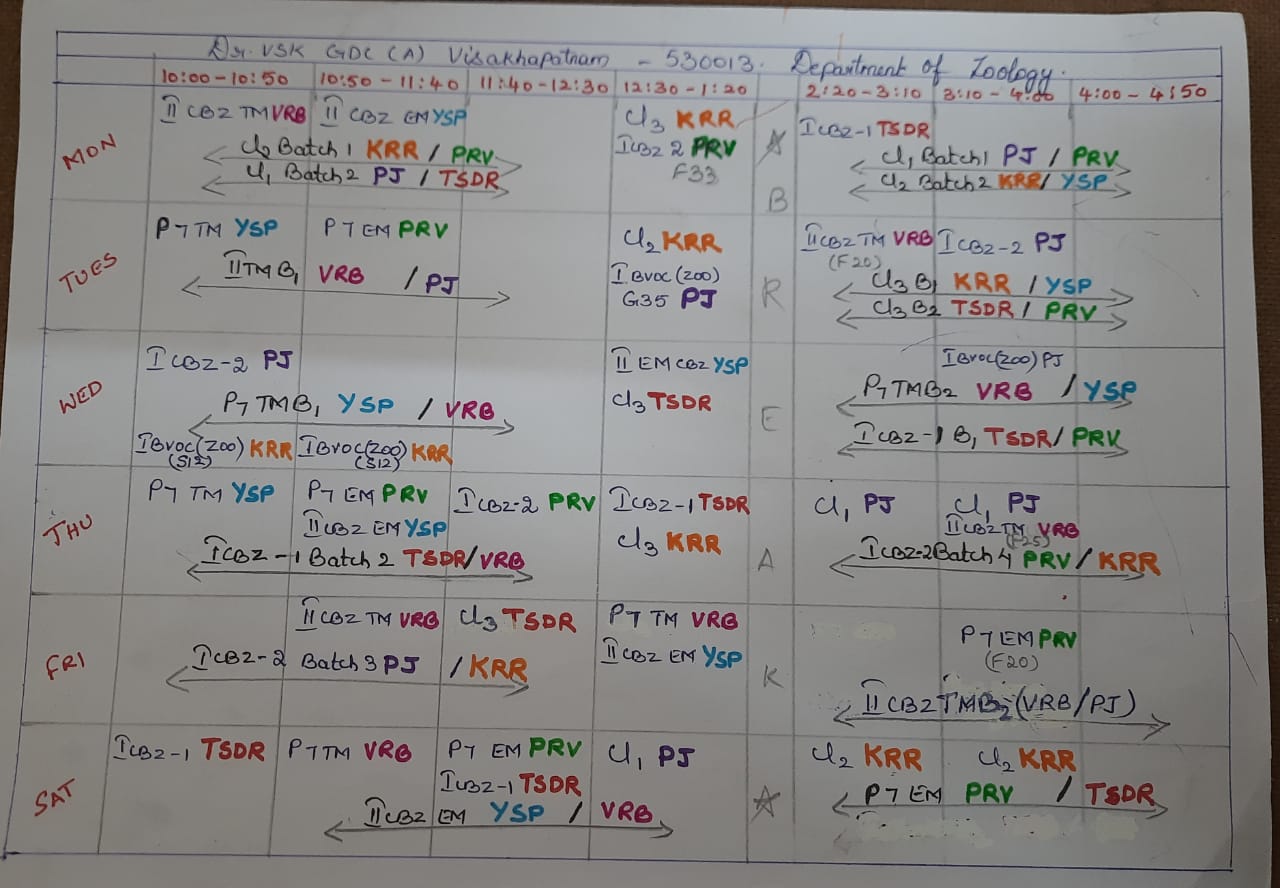 Dr. VSK GDC (A) Visakhapatnam - 530013. Department of Zoology.
10:00-10:50 10:50-11:40 11:40-12:30 12:30-1:20 2:20-3:10 3:10-4:00 4:00-4:50
MON
II CBZ TM VRB II CBZ EM YSP Cl3 KRR I CBZ-1 TSDR
Cl2 Batch 1 KRR / PRV I CBZ 2 PRV Cl1 Batch 1 PJ / PRV
Cl1 Batch 2 PJ / TSDR F33 Cl2 Batch 2 KRR / YSP
B
TUES
P7 TM YSP P7 EM PRV Cl2 KRR II CBZ TM VRB I CBZ-2 PJ
(F20)
II TM B1 VRB / PJ I BVOC (ZOO) Cl3 B1 KRR / YSP
G35 PJ R Cl3 B2 TSDR / PRV
WED
I CBZ-2 PJ II EM CBZ YSP I Bvoc (ZOO) PJ
P7 TM B1 YSP / VRB Cl3 TSDR P7 TM B2 VRB / YSP
I BVOC (ZOO) KRR I BVOC (ZOO) KRR E I CBZ-1 B1 TSDR / PRV
(S12) (S12)
THU
P7 TM YSP P7 EM PRV I CBZ-2 PRV I CBZ-1 TSDR Cl1 PJ Cl1 PJ
II CBZ EM YSP Cl3 KRR II CBZ TM VRB
(F25)
I CBZ-1 Batch 2 TSDR / VRB A I CBZ-2 Batch 4 PRV / KRR
FRI
II CBZ TM VRB Cl3 TSDR P7 TM VRB P7 EM PRV
(F20)
I CBZ-2 Batch 3 PJ / KRR II CBZ EM YSP K II CBZ TM B2 (VRB / PJ)
SAT
I CBZ-1 TSDR P7 TM VRB P7 EM PRV Cl1 PJ Cl2 KRR Cl2 KRR
I CBZ-1 TSDR P7 EM PRV / TSDR
II CBZ EM YSP / VRB